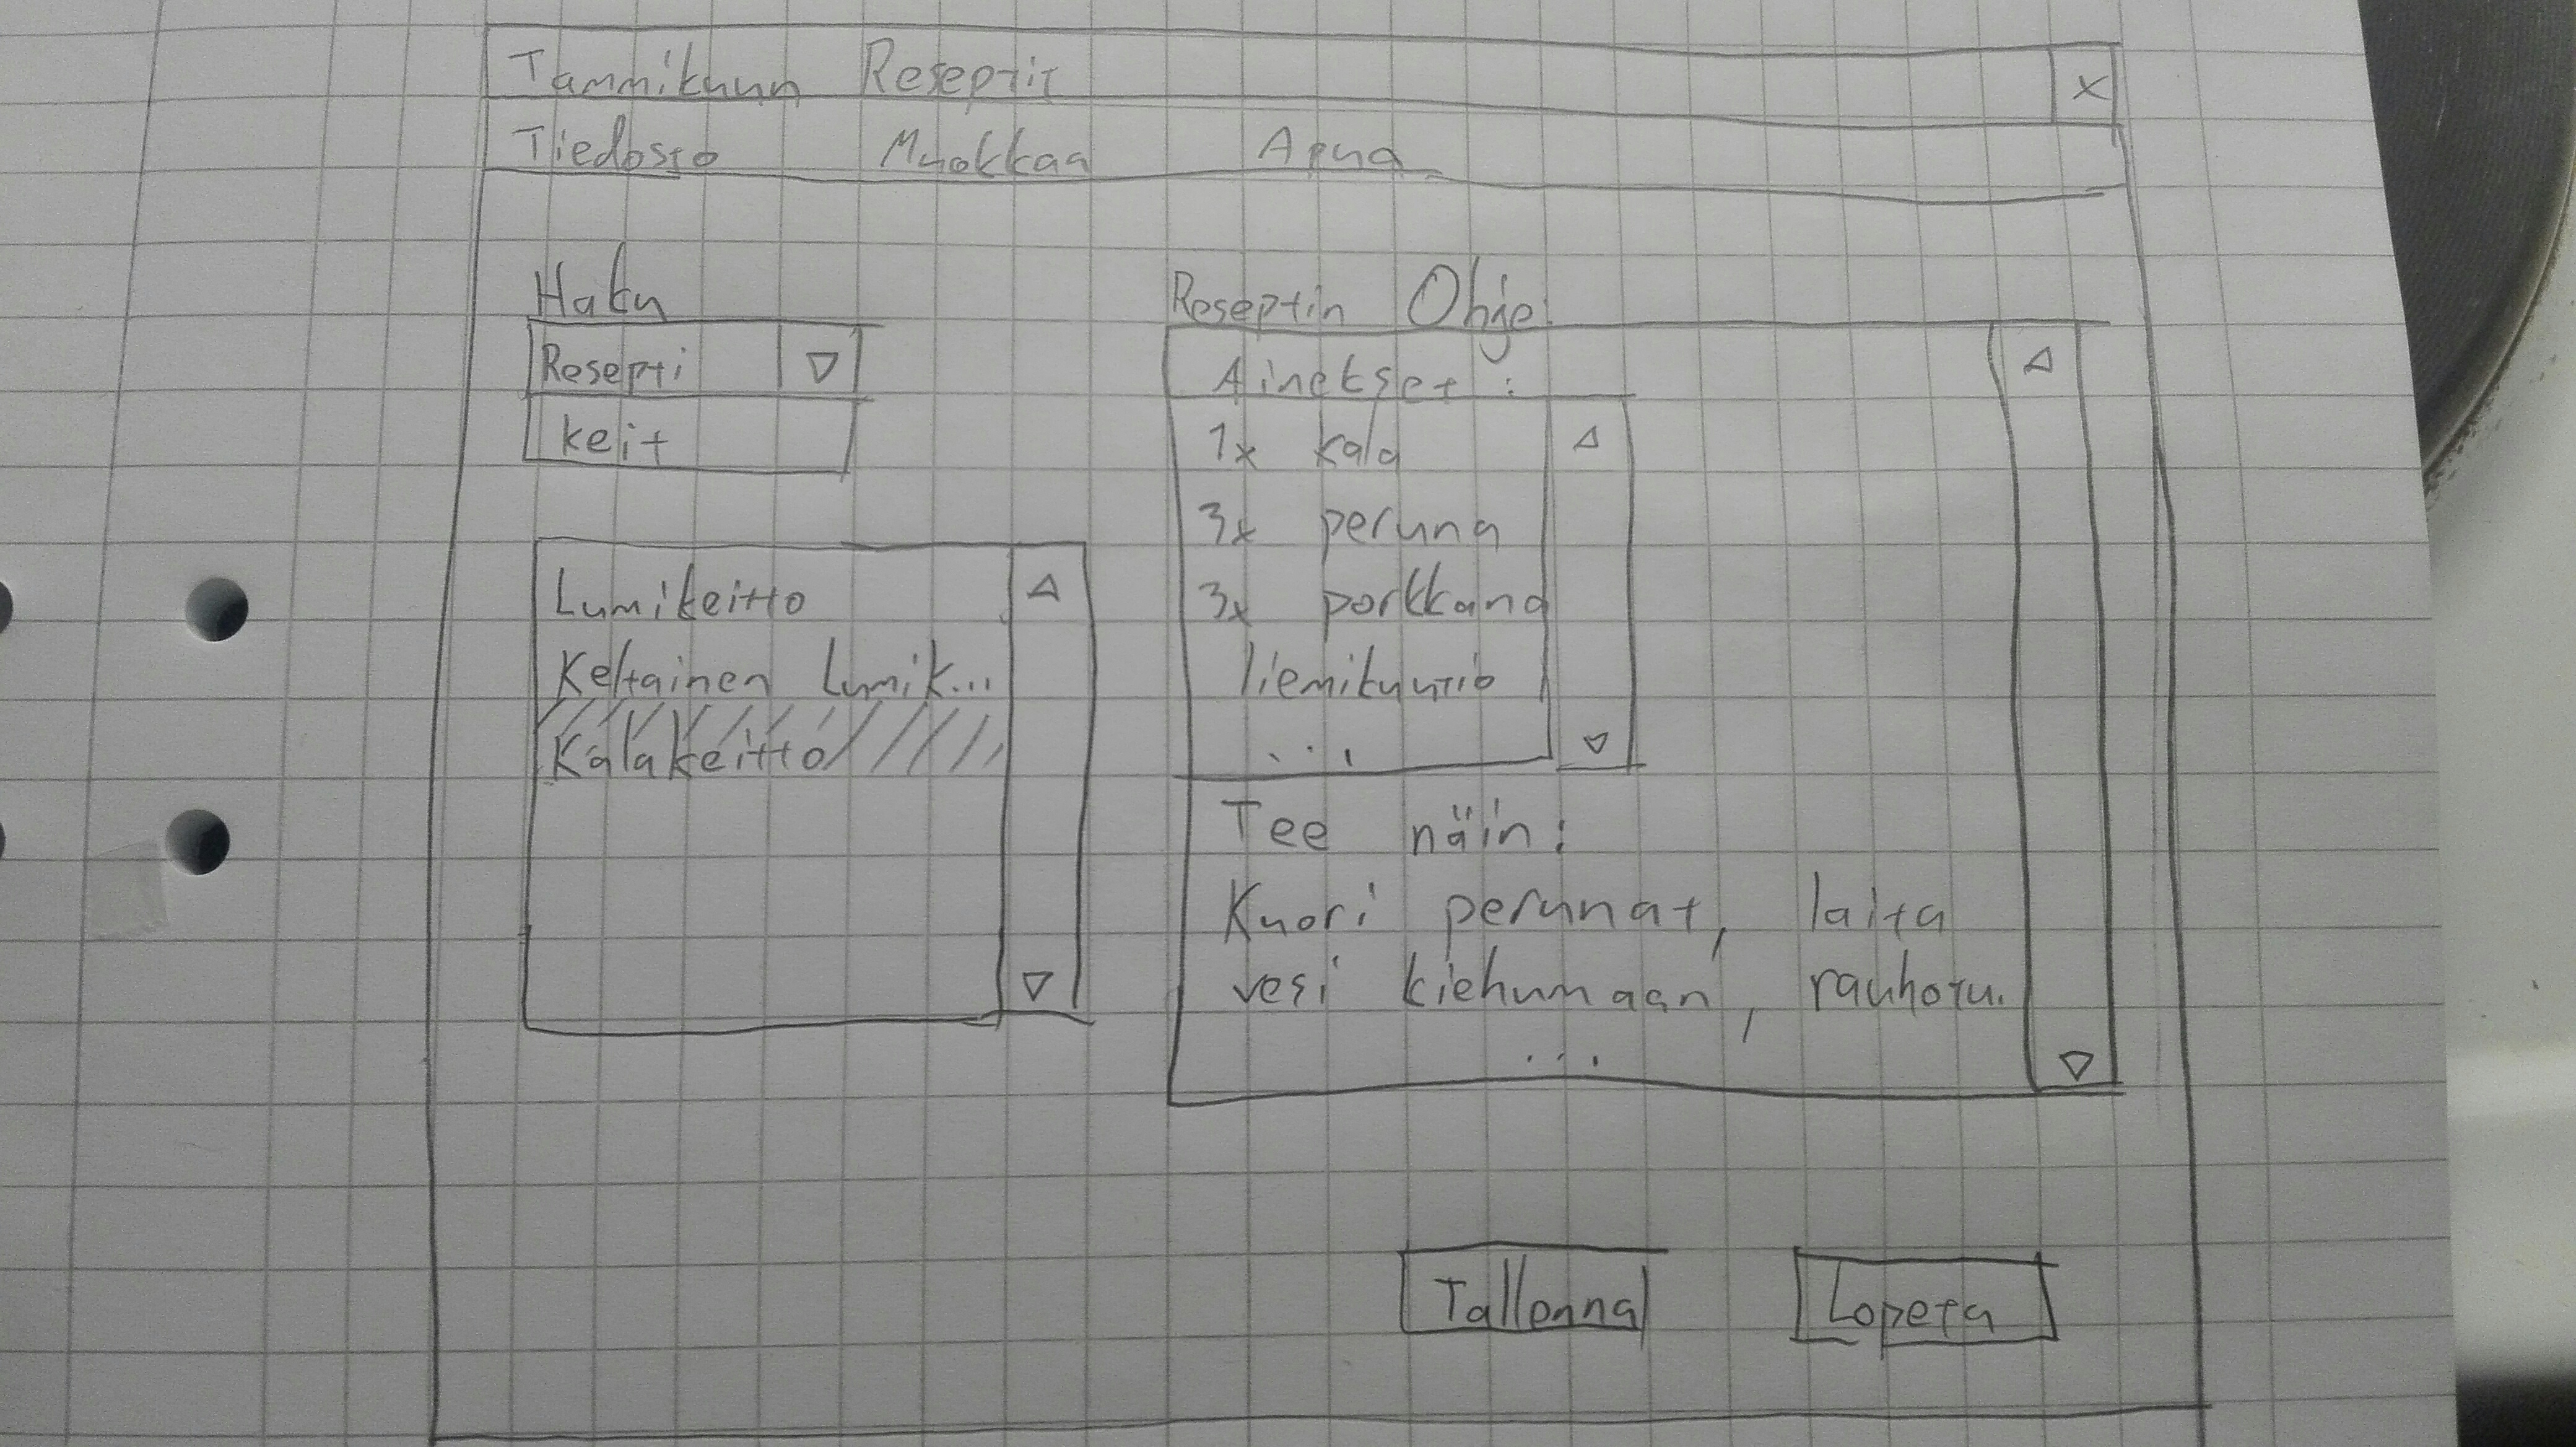 Tammikuun Reseptit X
Tiedosto Muokkaa Apua
Haku
Resepti
keit
Lumikeitto
Keltainen Lumik...
Kalakeitto
Reseptin Ohje:
Ainekset:
1x kala
3x peruna
3x porkkana
liemikuutio
...
Tee näin:
Kuori perunat, laita
vesi kiehumaan, rauhotu.
...
Tallenna Lopeta